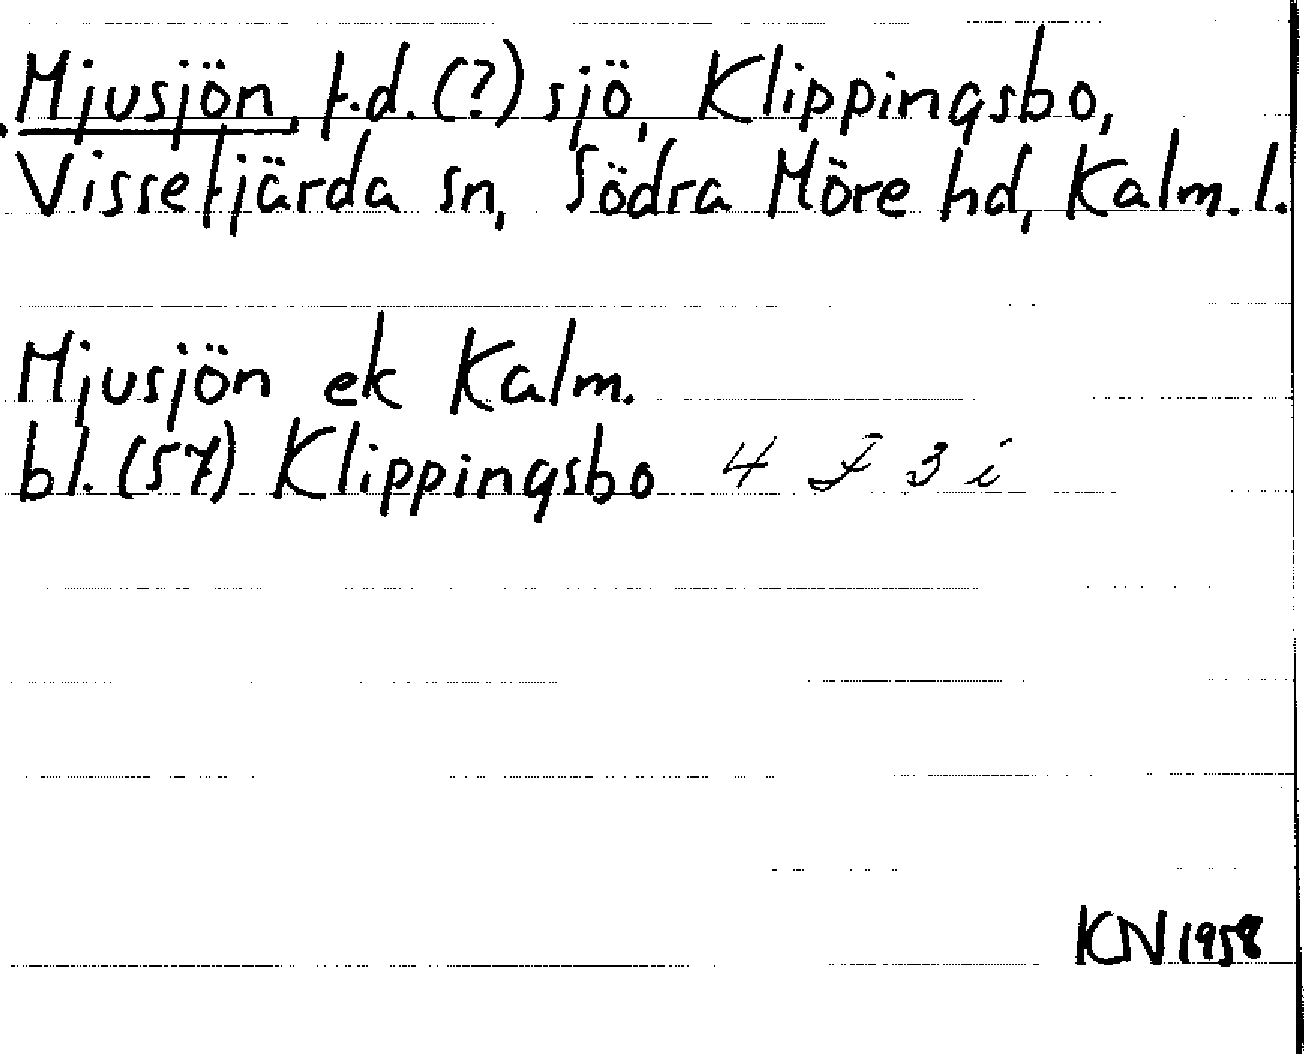 Mjusjön, f.d. (?) sjö, Klippingsbo,
Vissefjärda sn, Södra Möre hd, Kalm. l.
Mjusjön ek Kalm.
bl. (57) Klippingsbo 4 F 3 i
KN 1958